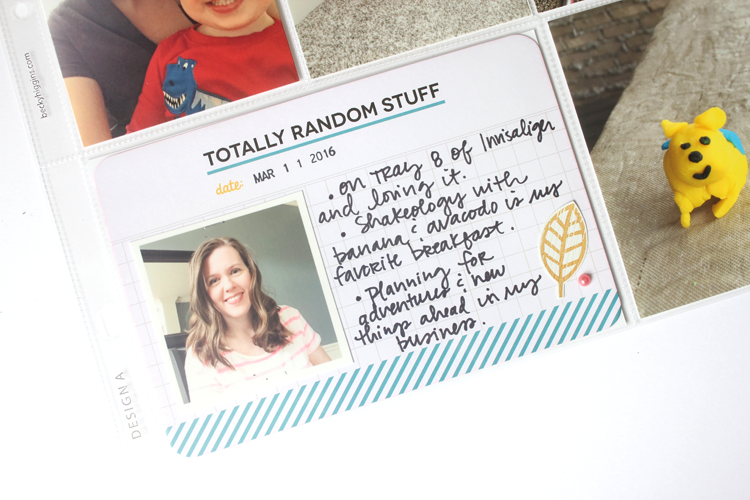 beckyhiggins.com
TOTALLY RANDOM STUFF
date: MAR 11 2016
• on Tray 8 of Invisalign
and loving it.
• Shakeology with
banana & avacodo is my
favorite breakfast.
• Planning for
adventures & new
things ahead in my
business.
DESIGN A